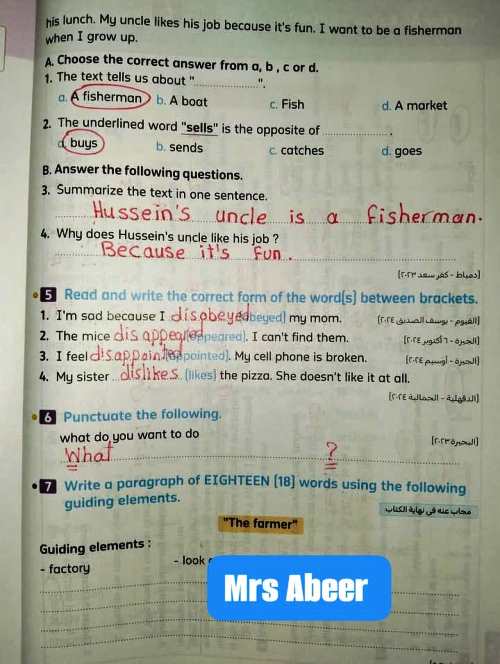 his lunch. My uncle likes his job because it's fun. I want to be a fisherman
when I grow up.
A. Choose the correct answer from a, b , c or d.
1. The text tells us about "......................".
a. A fisherman b. A boat c. Fish d. A market
2. The underlined word "sells" is the opposite of ...................... .
buys b. sends c. catches d. goes
B. Answer the following questions.
3. Summarize the text in one sentence.
Hussein's uncle is a fisherman.
4. Why does Hussein's uncle like his job ?
Because it's fun.
(دمياط - كفر سعد ٢٠٢٣)
5 Read and write the correct form of the word(s) between brackets.
1. I'm sad because I disobeyed (obeyed) my mom. (الفيوم - يوسف الصديق ٢٠٢٤)
2. The mice disappeared (appeared). I can't find them. (الجيزة - ٦ أكتوبر ٢٠٢٤)
3. I feel disappointed (appointed). My cell phone is broken. (الجيزة - أوسيم ٢٠٢٤)
4. My sister dislikes (likes) the pizza. She doesn't like it at all.
(الدقهلية - الجمالية ٢٠٢٤)
6 Punctuate the following.
what do you want to do (البحيرة ٢٠٢٣)
What ?
7 Write a paragraph of EIGHTEEN (18) words using the following
guiding elements. مجاب عنه في نهاية الكتاب
"The farmer"
Guiding elements :
- factory - look
Mrs Abeer